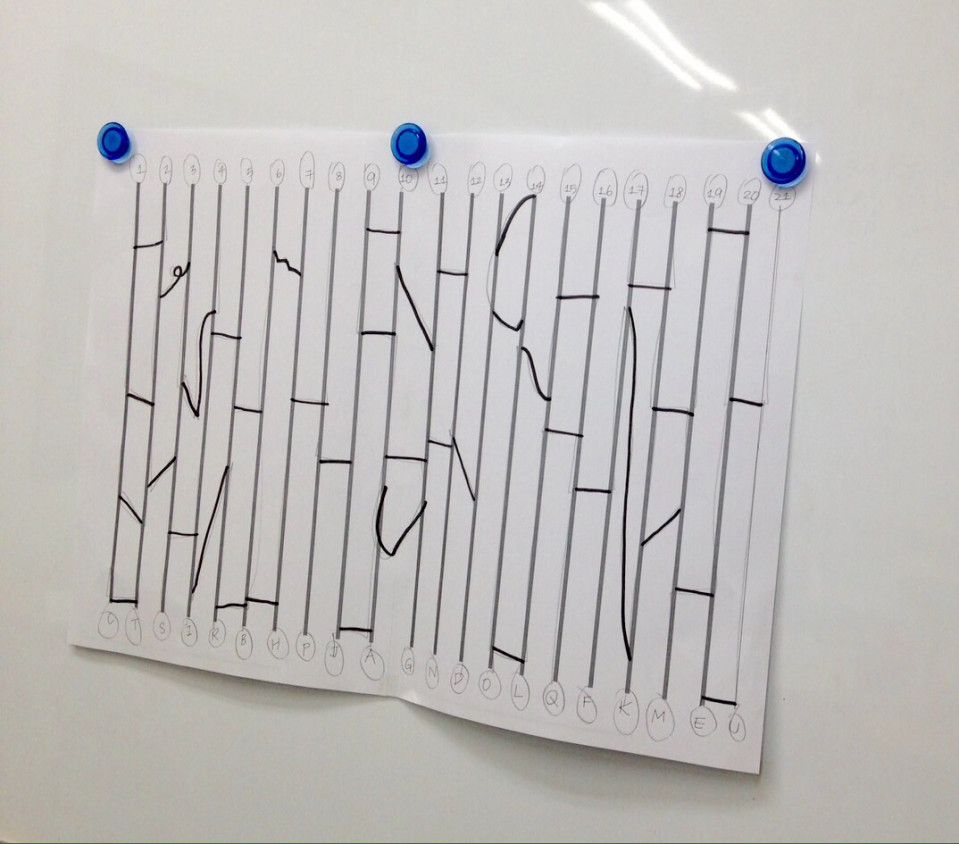 1 2 3 4 5 6 7 8 9 10 11 12 13 14 15 16 17 18 19 20 21
C T S I R B H P J A G N D O L Q F K M E U